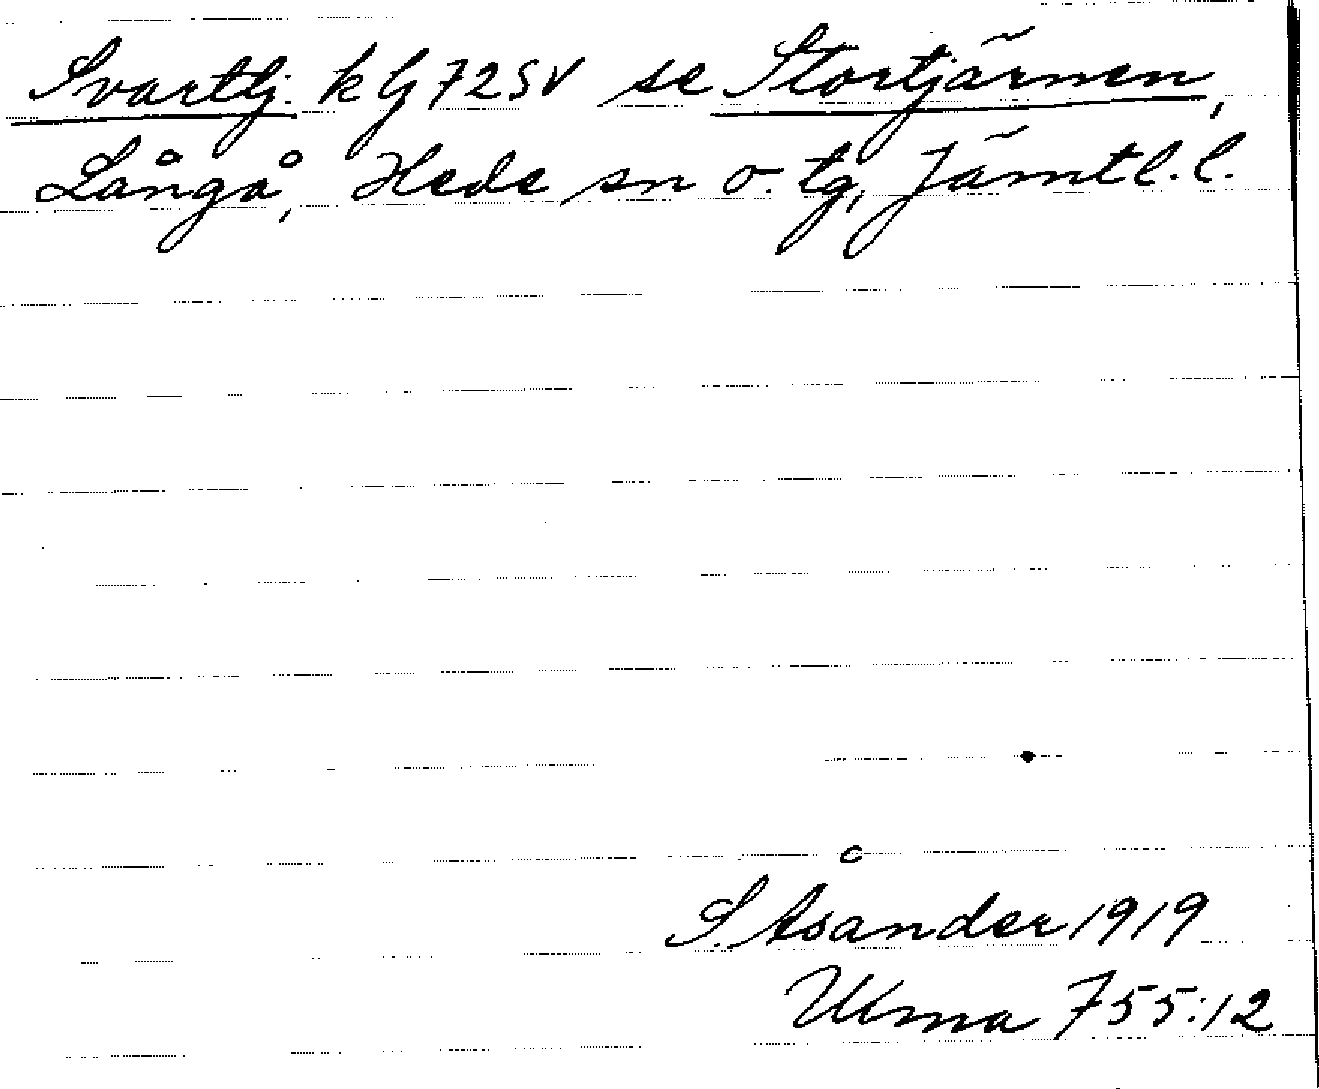 Svarttj. k G 72 SV se Stortjärnen,
Långå, Hede sn o. tg, Jämtl. l.
S. Åsander 1919
Ulma 755:12